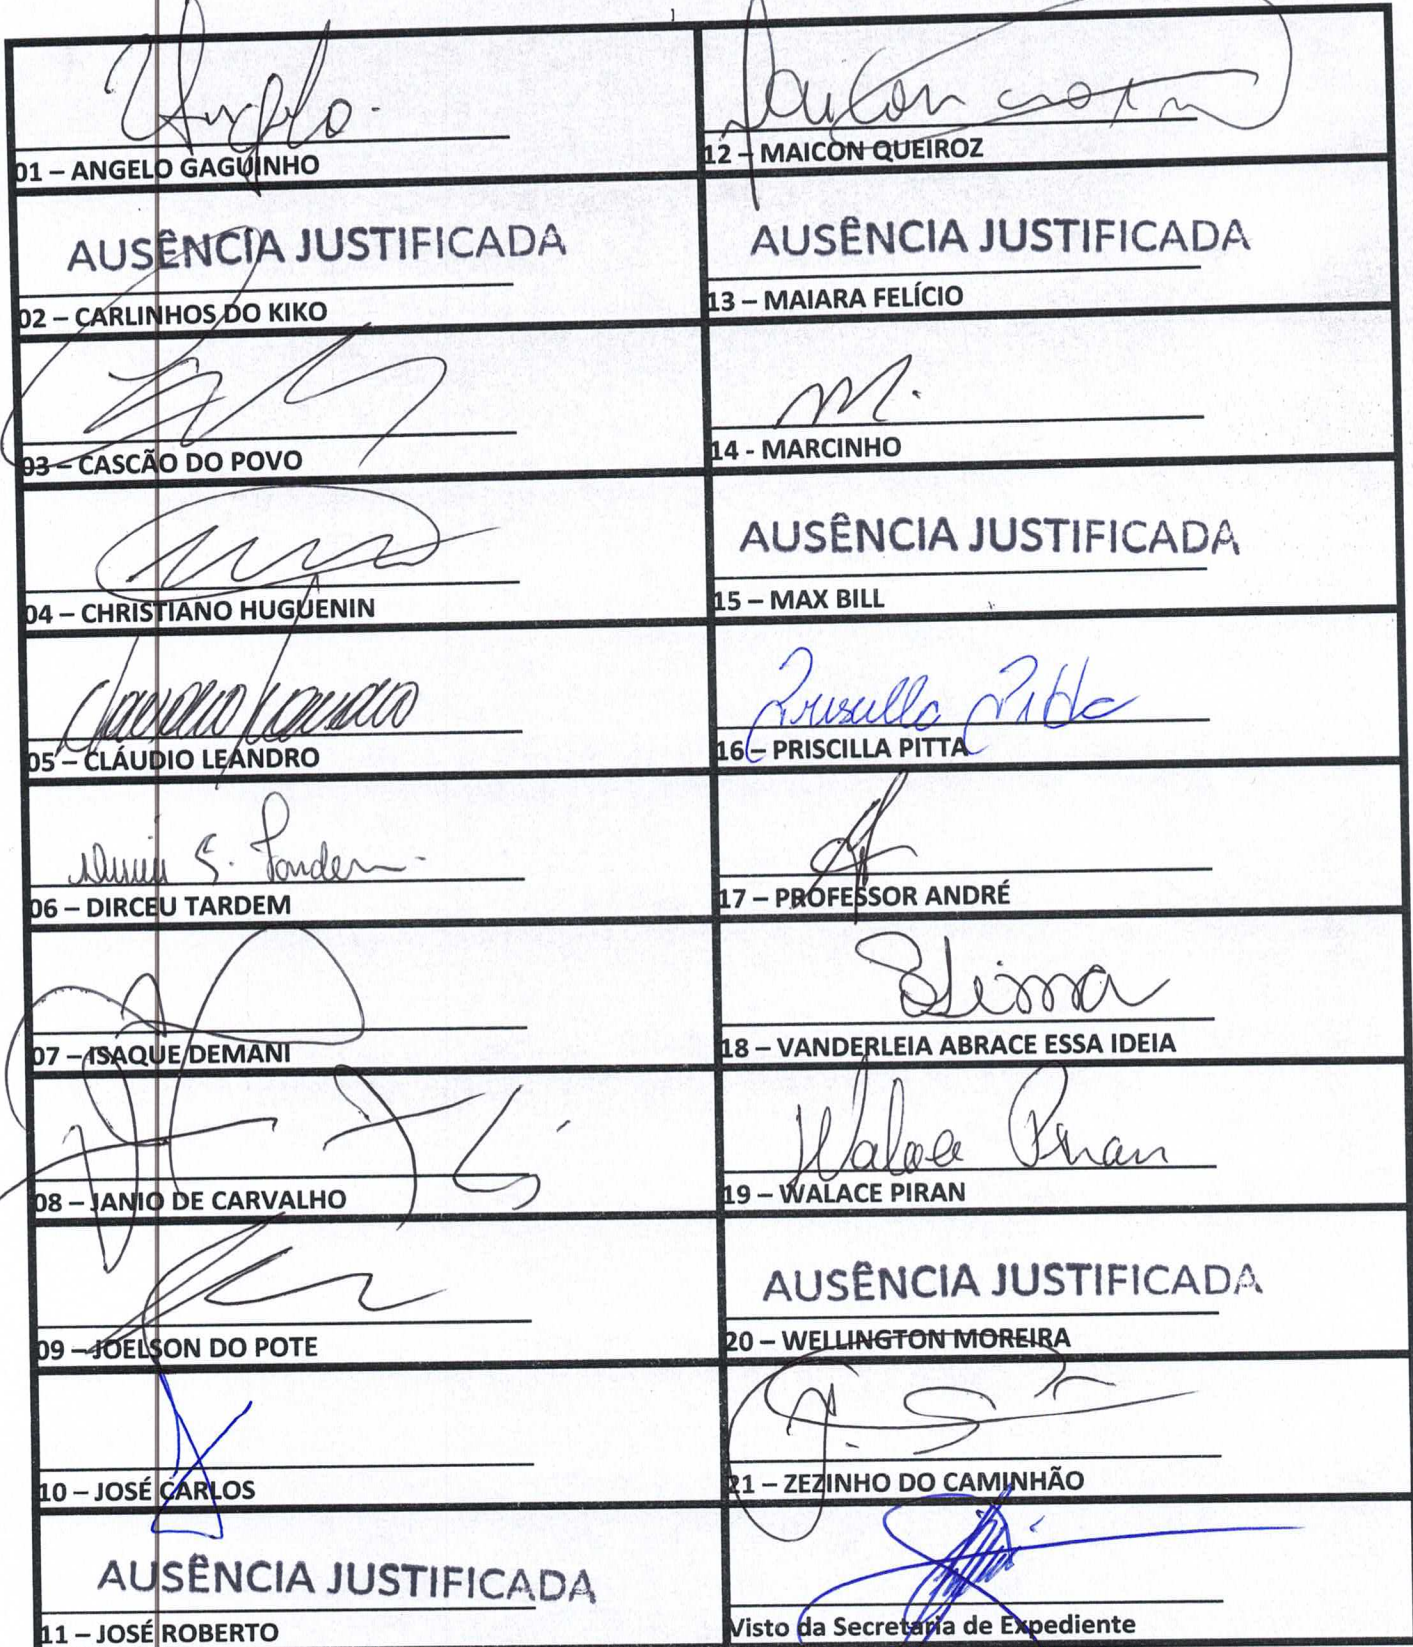 Angelo
01 – ANGELO GAGUINHO
AUSÊNCIA JUSTIFICADA
02 – CARLINHOS DO KIKO
03 – CASCÃO DO POVO
04 – CHRISTIANO HUGUENIN
05 – CLÁUDIO LEANDRO
06 – DIRCEU TARDEM
07 – ISAQUE DEMANI
08 – JANIO DE CARVALHO
09 – JOELSON DO POTE
10 – JOSÉ CARLOS
AUSÊNCIA JUSTIFICADA
11 – JOSÉ ROBERTO
12 – MAICON QUEIROZ
AUSÊNCIA JUSTIFICADA
13 – MAIARA FELÍCIO
14 - MARCINHO
AUSÊNCIA JUSTIFICADA
15 – MAX BILL
Priscilla Pitta
16 – PRISCILLA PITTA
17 – PROFESSOR ANDRÉ
18 – VANDERLEIA ABRACE ESSA IDEIA
Walace Piran
19 – WALACE PIRAN
AUSÊNCIA JUSTIFICADA
20 – WELLINGTON MOREIRA
21 – ZEZINHO DO CAMINHÃO
Visto da Secretaria de Expediente